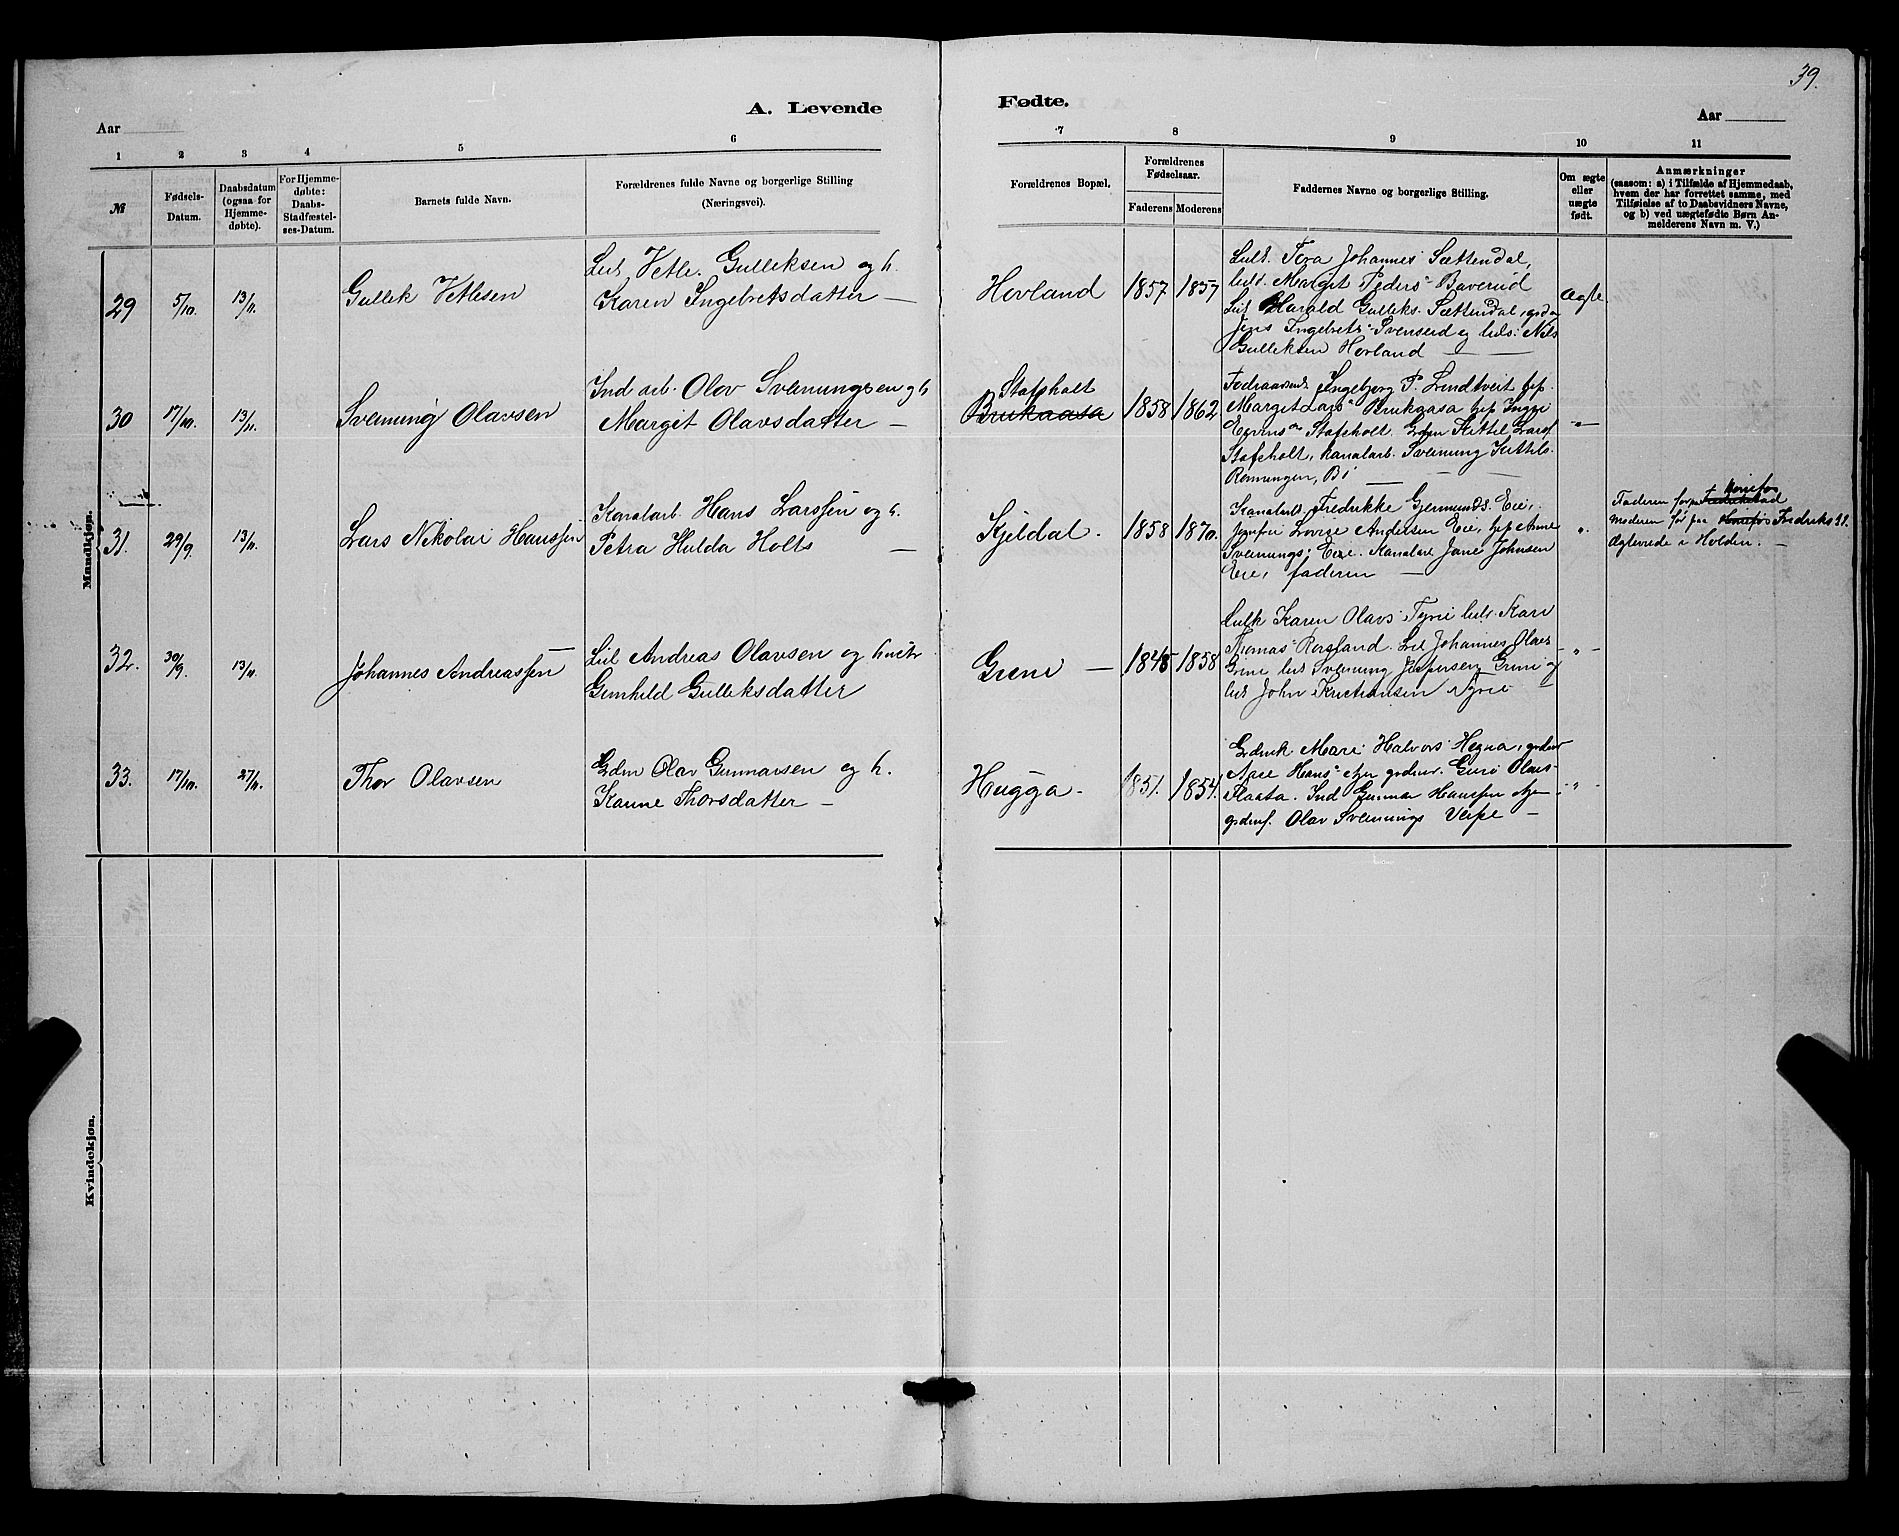 39.
A. Levende Fødte.
Aar Aar
1 2 3 4 5 6 7 8 9 10 11
№
Fødsels-Datum.
Daabsdatum (ogsaa for Hjemme-døbte).
For Hjemme-døbte: Daabs-Stadfæstel-ses-Datum.
Barnets fulde Navn.
Forældrenes fulde Navne og borgerlige Stilling
(Næringsvei).
Forældrenes Bopæl.
Forældrenes Fødselsaar.
Faderens Moderens
Faddernes Navne og borgerlige Stilling.
Om ægte eller uægte født.
Anmærkninger
(saasom: a) i Tilfælde af Hjemmedaab,
hvem der har forrettet samme, med
Tilføielse af to Daabsvidners Navne,
og b) ved uægtefødte Børn An-
melderens Navn m. V.)
Mandkjøn.
29 5/10. 13/11. Gullek Vetlesen
Leil Vetle. Gulleksen og h.
Karen Ingebretsdatter —
Hovland 1857 1857
Tora Johannes Sættendal,
Margit Peders Baverud
Harald Gulleks. Sættendal,
Jens Ingebrets Svenseid og
Gulleksen Hovland
Ægte
30 17/10. 13/11. Svenung Olavsen
Ind arb. Olav Svenungsen og h
Margit Olavsdatter —
Stafsholt
Brukaasa 1858 1862
Ingebjorg P. Lindtveit
Margit Lars Brukaasa
Stafsholt. Gdm Kittil Lars
Stafsholt, kanalarb. Svenung Kittils.
Ronningen, Bø
"
31. 29/9. 13/11. Lars Nikolai Hanssen
Kanalarb. Hans Larssen og h.
Petra Hulda Holts —
Kjeldal. 1858 1870.
Fredrikke Gjermunds. Eie,
Andersen Eie,
Svenungs. Eie. Jane Johnsen
Eie, faderen —
"
Honefos
Faderen for paa Fredrikstad
Moderen for paa Honefos Fredrikst.
Ægteviede i Holden. —
32. 30/9. 13/11. Johannes Andreassen
Leil Andreas Olavsen og hustr
Gunhild Gulleksdatter
Grene — 1845 1858
Karen Olavs Tyrie Kari
Thomas Rorsland. Leil Johannes Olavs
Grene Svenung Jespersen Grene og
John Kristiansen Tyrie —
"
33. 17/10. 27/11. Thor Olavsen
Gdm Olav Gunnarsen og h.
Kanne Thorsdatter —
Hugga. 1851. 1854.
Gdmk Mari Halvors Hegna,
Hans Guro Olavs
Flaata. Ind Gunnar Hanssen
Olav Svenungs Verpe —
"
Kvindekjøn.